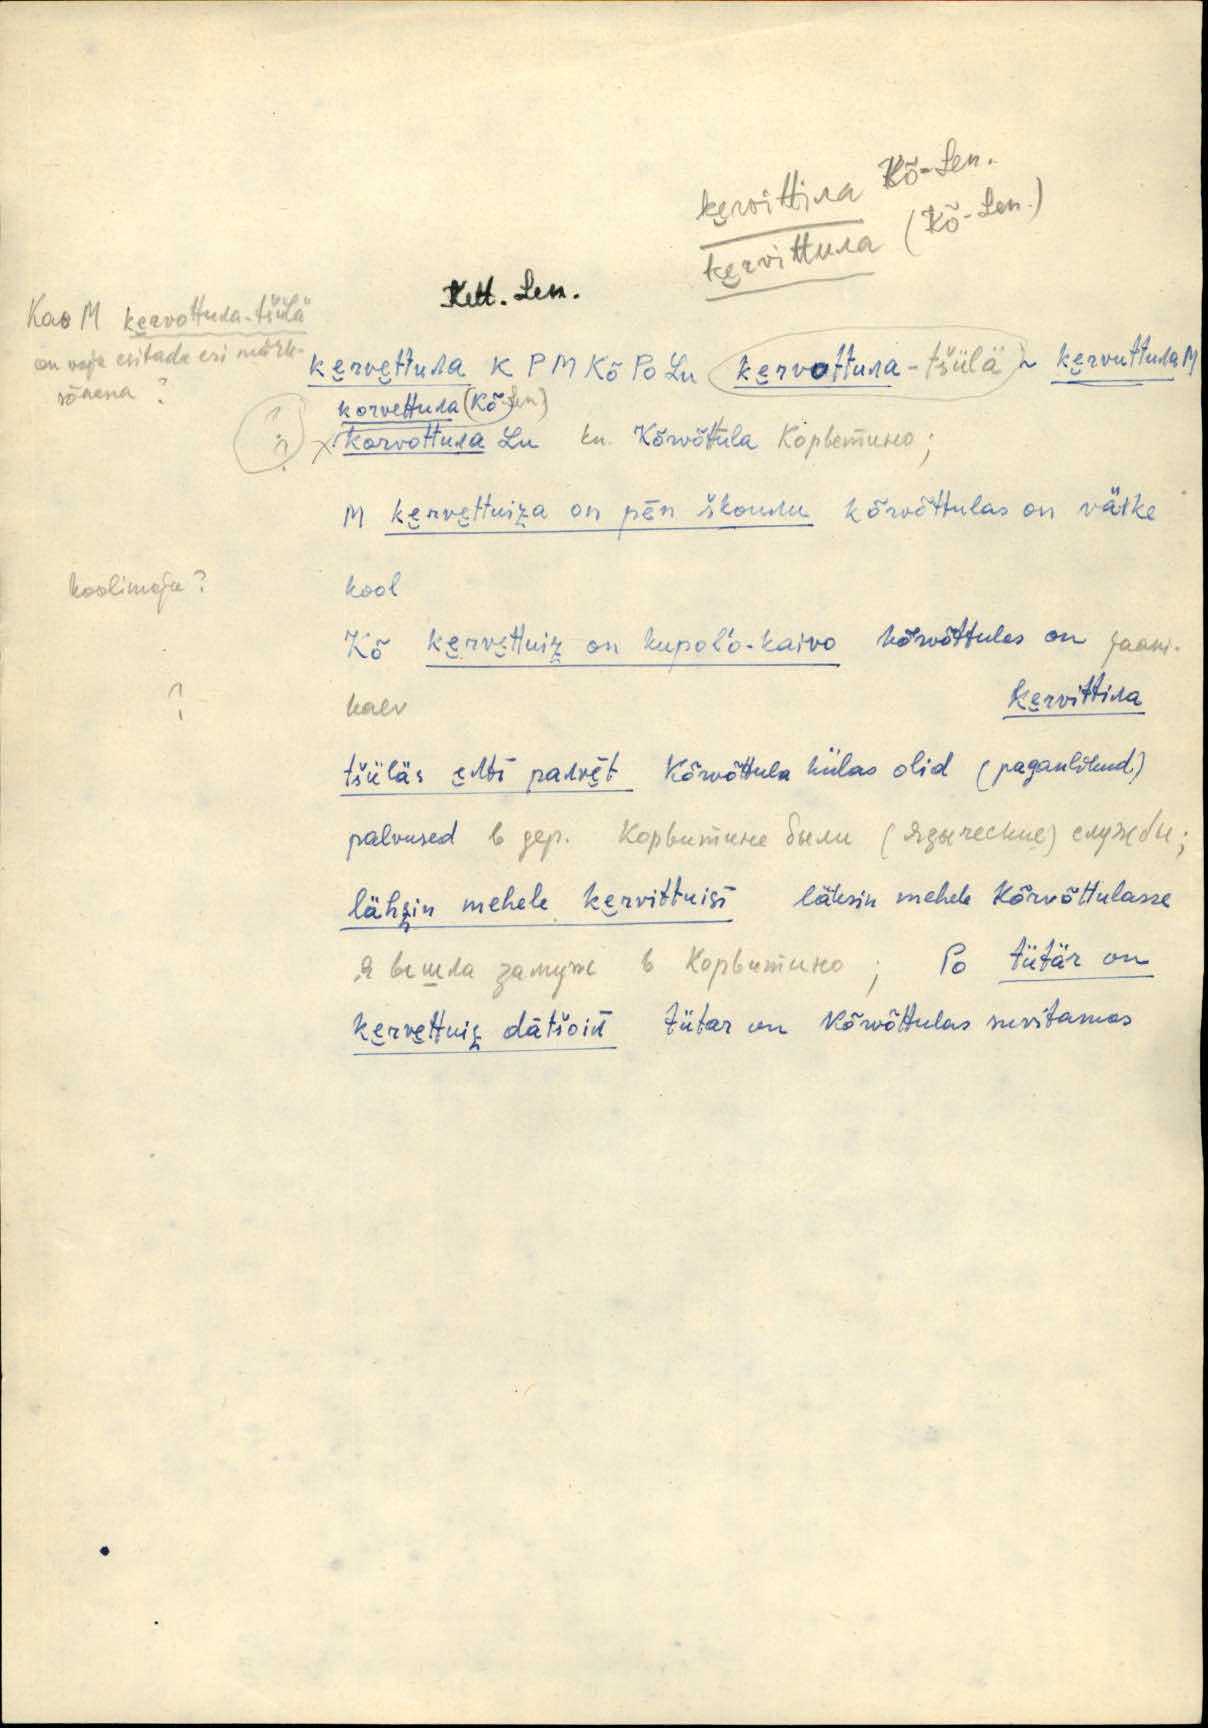 ke̮rvittiла Kõ-Len.
ke̮rvittuла (Kõ-Len.)
Kett. Len.
Kas M ke̮rvottuла-tšülä
on vaja esitada eri märk-
sõnena ?
ke̮rve̮ttuла K P M Kõ Po Lu ke̮rvottuла-tšülä ~ ke̮rvuttuла M
korvettuла (Kõ-Len)
? × korvottuла Lu kn. Kõrvõttula Корветино;
M ke̮rve̮ttuiza on pēn škouлu kõrvõttulas on väike
koolimaja ? kool
Kõ ke̮rve̮ttuiz on kupoľo-kaivo kõrvõttulas on jaani-
? kaev ke̮rvittiла
tšüläs e̮лtī paлve̮t Kõrvõttula külas olid (paganlikud)
palvused в дер. Корвитине были (языческие) службы;
lähzin mehele ke̮rvittuisī läksin mehele Kõrvõttulasse
я вышла замуж в Корвитино; Po tütär on
ke̮rve̮ttuiz dātšoiɯ tütar on Kõrvõttulas suvitamas